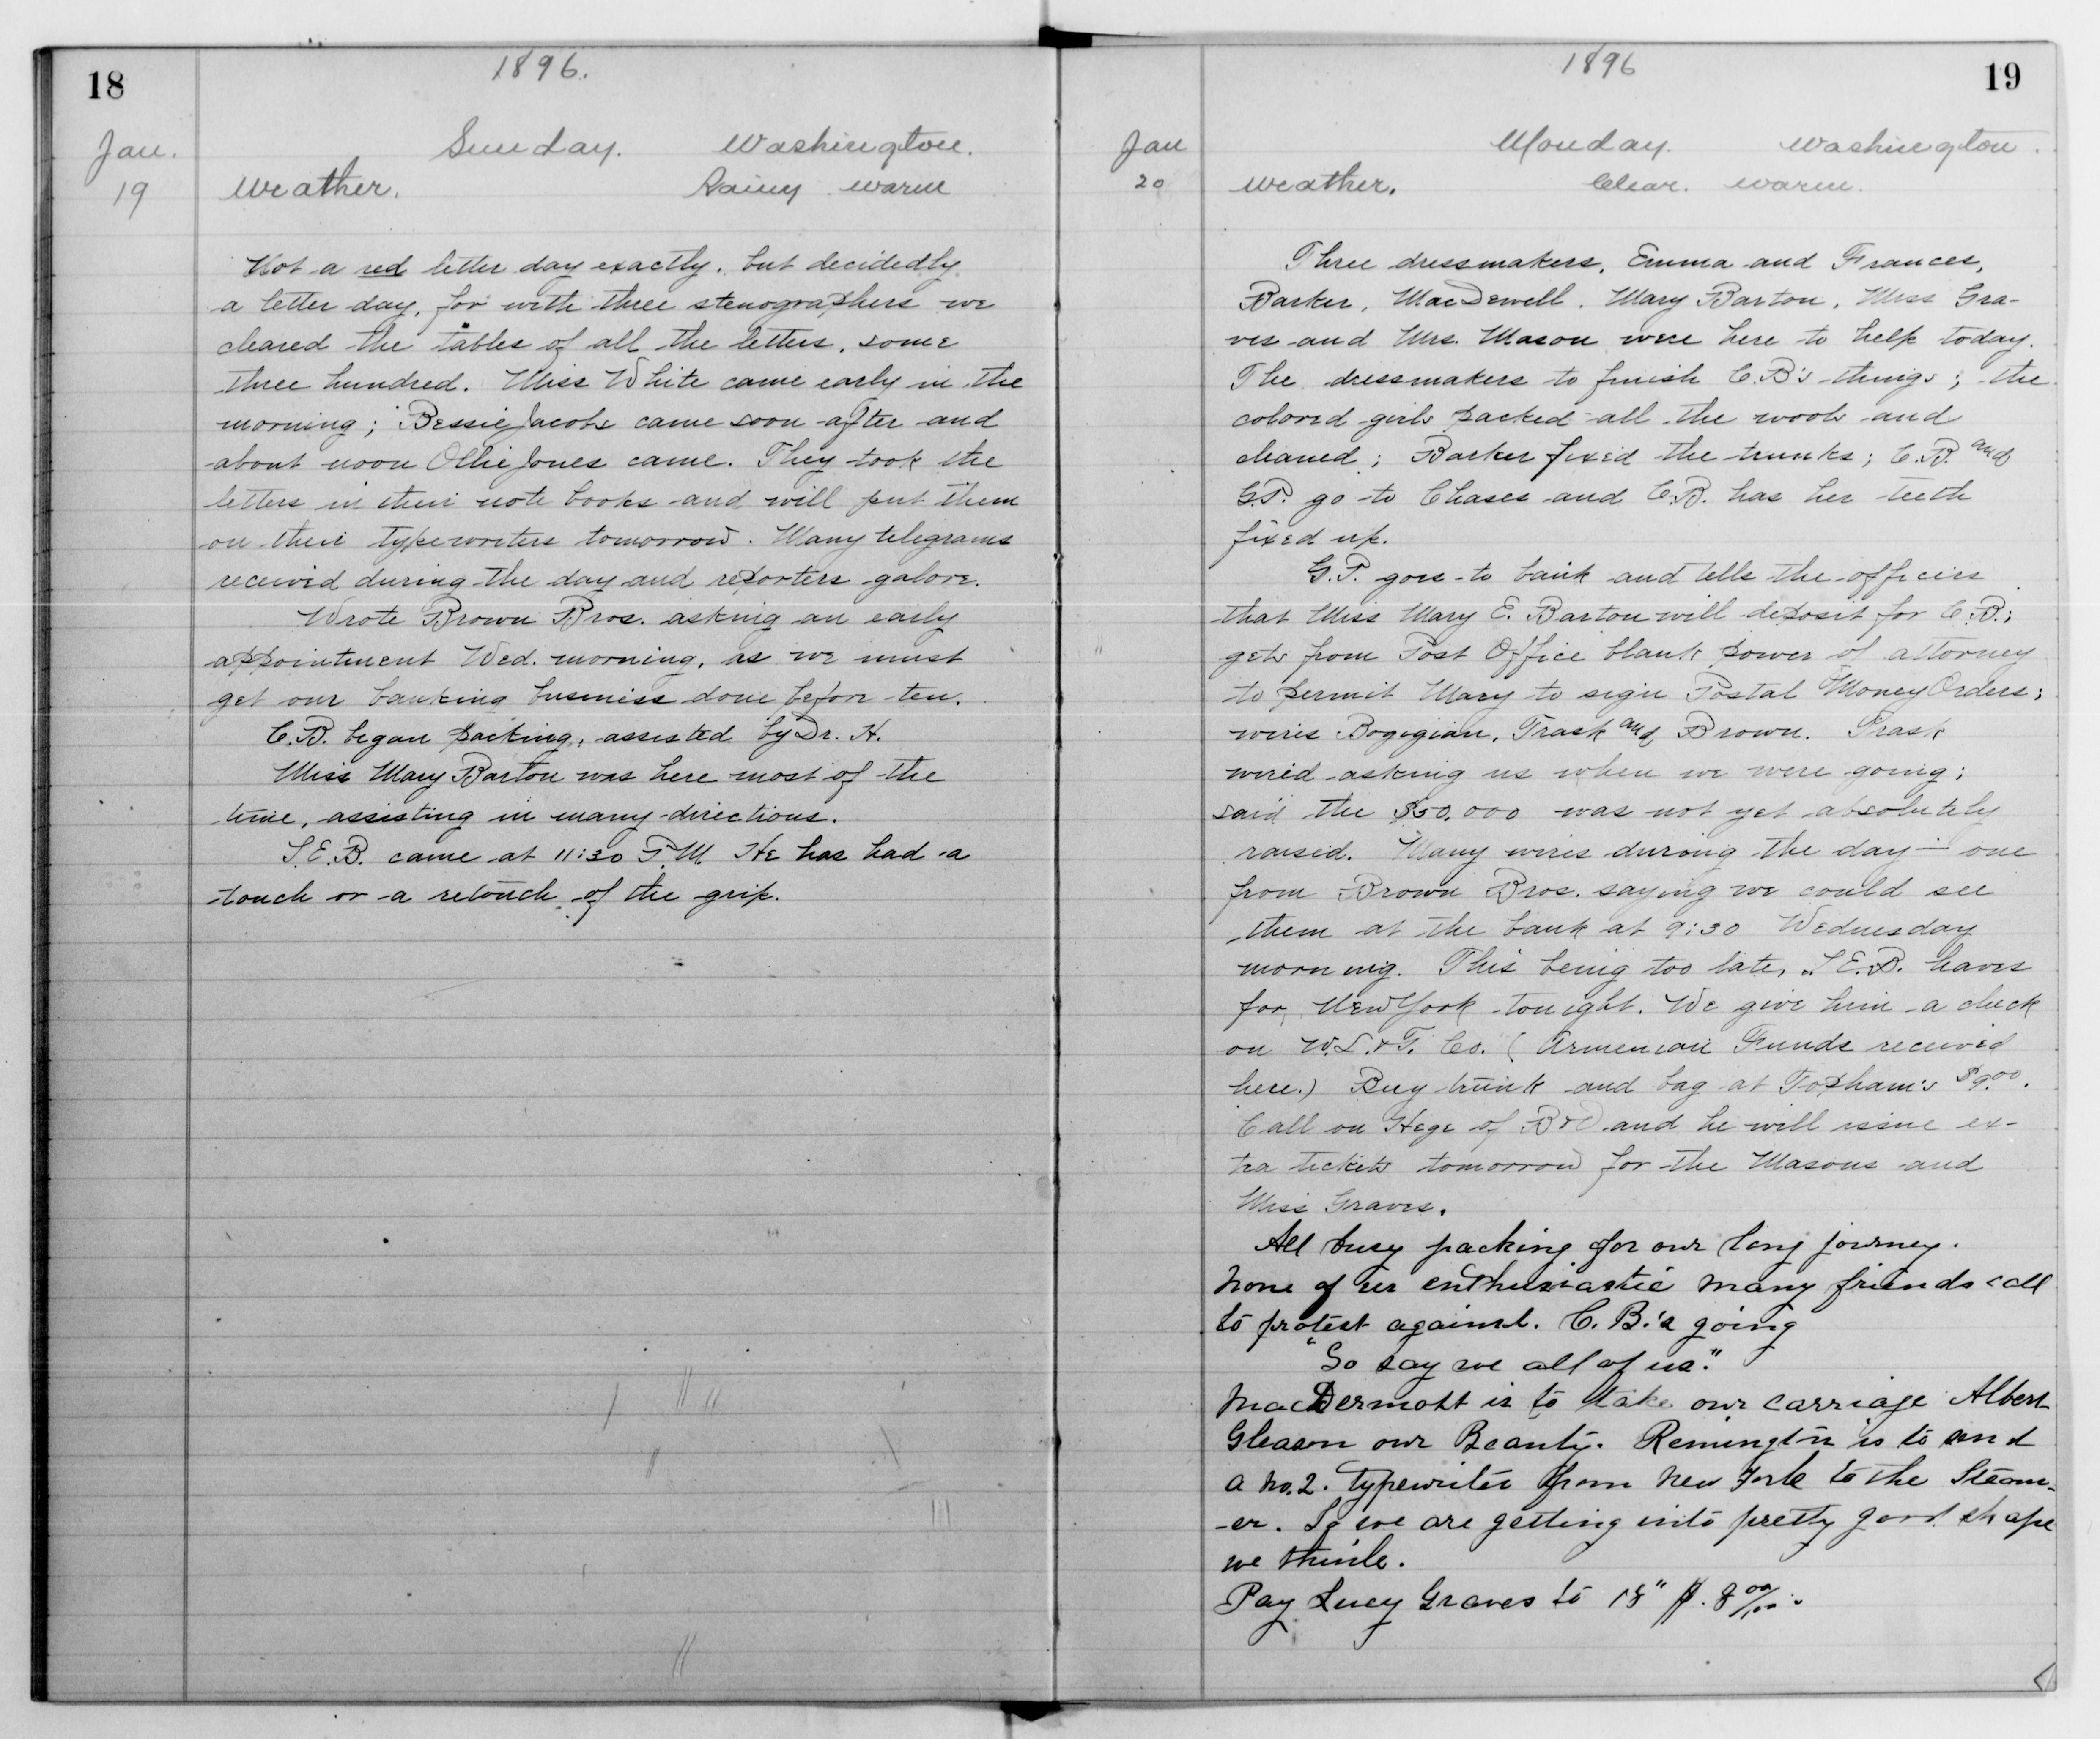 18
1896.
Jan.
19
Sunday. Washington.
Weather. Rainy warm
Not a red letter day exactly, but decidedly
a letter day, for with three stenographers we
cleared the tables of all the letters, some
three hundred. Miss White came early in the
morning; Bessie Jacobs came soon after and
about noon Ollie Jones came. They took the
letters in their note books and will put them
on their typewriters tomorrow. Many telegrams
received during the day and reporters galore.
Wrote Brown Bros. asking an early
appointment Wed. morning, as we must
get our banking business done before ten.
C.B. began packing, assisted by Dr. H.
Miss Mary Barton was here most of the
time, assisting in many directions.
S.E.B. came at 11:30 P.M. He has had a
touch or a retouch of the grip.
1896
19
Jan
20
Monday. Washington.
Weather. Clear. warm.
Three dressmakers, Emma and Frances,
Barker, MacDowell, Mary Barton, Miss Gra-
ves and Mrs. Mason were here to help today.
The dressmakers to finish C.B's things; the
colored girls packed all the wools and
cleaned; Barker fixed the trunks; C.B. and
G.P. go to Chases and C.B. has her teeth
fixed up.
G.P. goes to bank and tells the officers
that Miss Mary E. Barton will deposit for C.B.;
gets from Post Office blank power of attorney
to permit Mary to sign Postal Money Orders;
wires Bogigian, Trask and Brown. Trask
wired asking us when we were going;
said the $50,000 was not yet absolutely
raised. Many wires during the day – one
from Brown Bros. saying we could see
them at the bank at 9:30 Wednesday
morning. This being too late, S.E.B. leaves
for New York tonight. We give him a check
on W.L.&T. Co. (Armenian Funds received
here.) Buy trunk and bag at Topham's $9.00.
Call on Hege of B&O and he will issue ex-
tra tickets tomorrow for the Masons and
Miss Graves.
All busy packing for our long journey.
None of us enthusiastic many friends call
to protest against. C.B.'s going
"So say we all of us."
MacDermott is to take our carriage Albert
Gleason our Beauty. Remington is to send
a No. 2. typewriter from New York to the Steam-
-er. So we are getting into pretty good shape
we think.
Pay Lucy Graves to 18" $. 8 00/100.